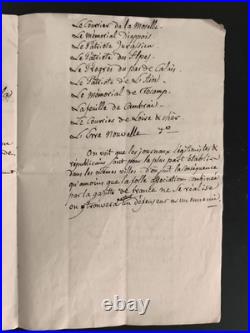 Le Courrier de la Moselle
Le Mémorial Dieppois
Le Patriote Jurassien
Le Patriote des Alpes
Le Progrès du pas de Calais
Le Patriote de L'Ain
Le Mémorial de Fécamp
La feuille de Cambrai
Le Courrier de Loire & Cher
Le Corse Nouvelle
On voit que les journaux légitimistes &
républicains sont pour la plus part établis
dans les mêmes villes. d'où la conséquence
qu'à moins que la folle association
par la gazette de france ne se réalise
on trouvera un défenseur